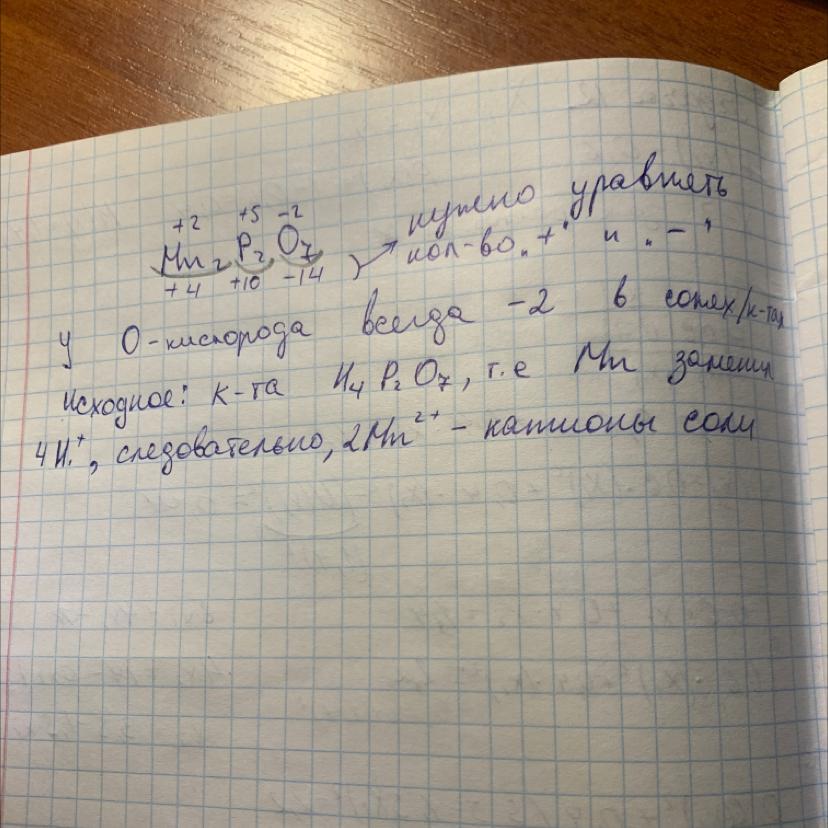 +2 +5 -2
Mn₂ P₂ O₇
+4 +10 -14
нужно уравнять
кол-во „+“ и „-“
У О-кислорода всегда -2 в солях/к-тах
Исходное: к-та H₄P₂O₇, т.е Mn заменил
4H⁺, следовательно, 2Mn²⁺ - катионы соли